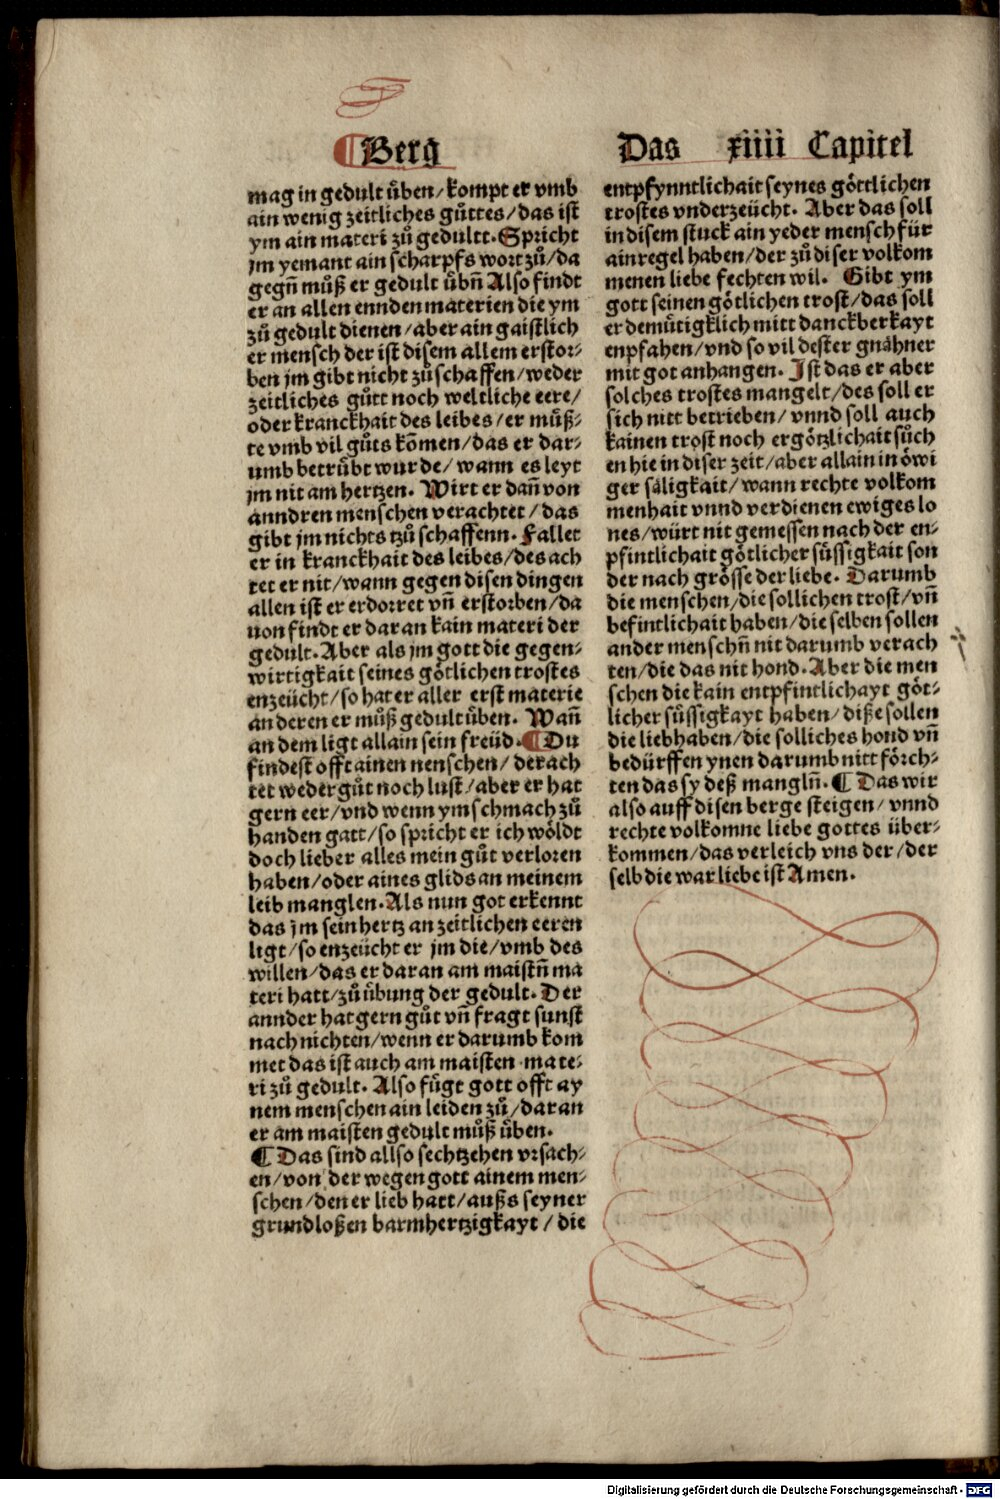 ¶Berg
mag in gedult uͤben/kompt er vmb
ain wenig zeitliches guͤttes/das ist
ym ain materi zuͦ gedultt. Spricht
jm yemant ain scharpfs wort zuͦ/da
gegñ muͦß er gedult uͤbñ Also findt
er an allen ennden materien die ym
zuͦ gedult dienen/aber ain gaistlich
er mensch der ist disem allem erstor⸗
ben jm gibt nicht zuͦ schaffen/weder
zeitliches guͦtt noch weltliche eere/
oder kranckhait des leibes/er muͦß⸗
te vmb vil guͦts kom̃en/das er dar⸗
umb betruͤbt wurde/wann es leyt
jm nit am hertzen. Wirt er dañ von
anndren menschen verachtet/das
gibt jm nichts tzuͦ schaffenn. Fallet
er in kranckhait des leibes/des ach
tet er nit/wann gegen disen dingen
allen ist er erdorret vñ erstorben/da
uon findt er daran kain materi der
gedult. Aber als jm gott die gegen⸗
wirtigkait seines goͤtlichen trostes
enzeücht/so hat er aller erst materie
an deren er muͦß gedult uͤben. Wañ
an dem ligt allain sein freüd. ¶Du
findest offt ainen nenschen/der ach
tet weder guͦt noch lust/aber er hat
gern eer/vnd wenn ym schmach zuͦ
handen gatt/so spricht er ich woͤldt
doch lieber alles mein guͦt verloren
haben/oder aines glids an meinem
leib manglen. Als nun got erkennt
das jm sein hertz an zeitlichen eeren
ligt/so enzeücht er jm die/vmb des
willen/das er daran am maistñ ma
teri hatt/zuͦ uͤbung der gedult. Der
annder hat gern guͦt vñ fragt sunst
nach nichten/wenn er darumb kom
met das ist auch am maisten mate⸗
ri zuͦ gedult. Also fuͤgt gott offt ay
nem menschen ain leiden zuͦ/daran
er am maisten gedult muͦß uͤben.
¶ Das sind allso sechtzehen vrsach⸗
en/von der wegen gott ainem men⸗
schen/den er lieb hatt/außs seyner
grundloßen barmhertzigkayt/die
Das xiiii Capitel
entpfynntlichait seynes goͤttlichen
trostes vnderzeücht. Aber das soll
in disem stuck ain yeder mensch für
ain regel haben/der zuͦ diser volkom
menen liebe fechten wil. Gibt ym
gott seinen goͤtlichen trost/das soll
er demuͤtigklich mitt danckberkayt
enpfahen/vnd so vil dester gnaͤhner
mit got anhangen. Ist das er aber
solches trostes mangelt/des soll er
sich nitt betrieben/vnnd soll auch
kainen trost noch ergoͤtzlichait suͦch
en hie in diser zeit/aber allain in oͤwi
ger saͤligkait/wann rechte volkom
menhait vnnd verdienen ewiges lo
nes/würt nit gemessen nach der en⸗
pfintlichait goͤtlicher suͤssigkait son
der nach groͤsse der liebe. Darumb
die menschen/die sollichen trost/vñ
befintlichait haben/die selben sollen
ander menschñ nit darumb verach
ten/die das nit hond. Aber die men
schen die kain entpfintlichayt goͤt⸗
licher suͤssigkayt haben/diße sollen
die liebhaben/die solliches hond vñ
bedürffen ynen darumb nitt foͤrch⸗
ten das sy deß manglñ. ¶ Das wir
also auff disen berge steigen/vnnd
rechte volkomne liebe gottes über⸗
kommen/das verleich vns der/der
selb die war liebe ist Amen.
Digitalisierung gefördert durch die Deutsche Forschungsgemeinschaft - DFG